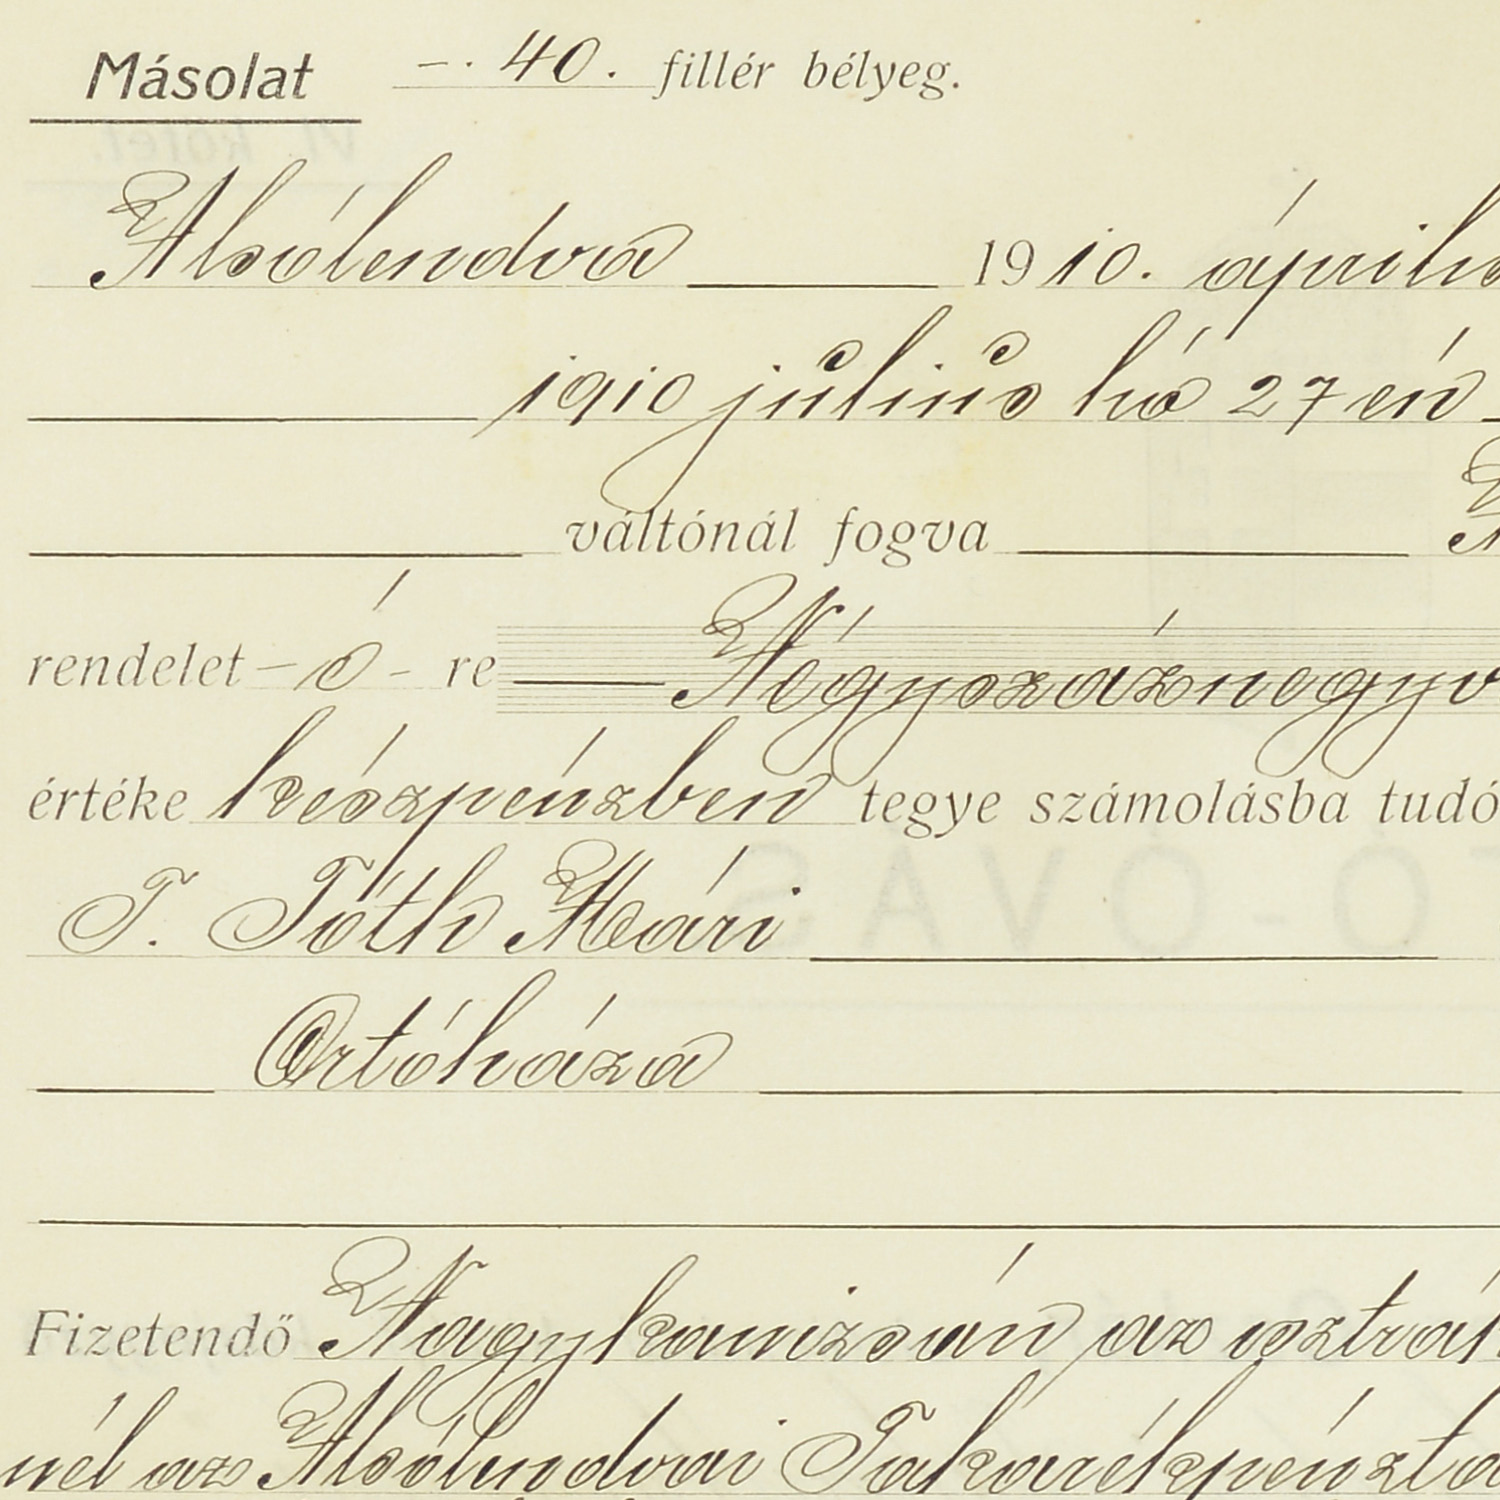 Másolat –. 40. fillér bélyeg.
Alsólendva 1910. április
1910 július hó 27 én
váltónál fogva
rendelet – ó - re Négyszáznegyv
értéke készpénzben tegye számolásba tudó
T. Tóth Mári
Ortóháza
Fizetendő Nagykanizsán az osztrák
nél az Alsólendvai Takarékpénztá